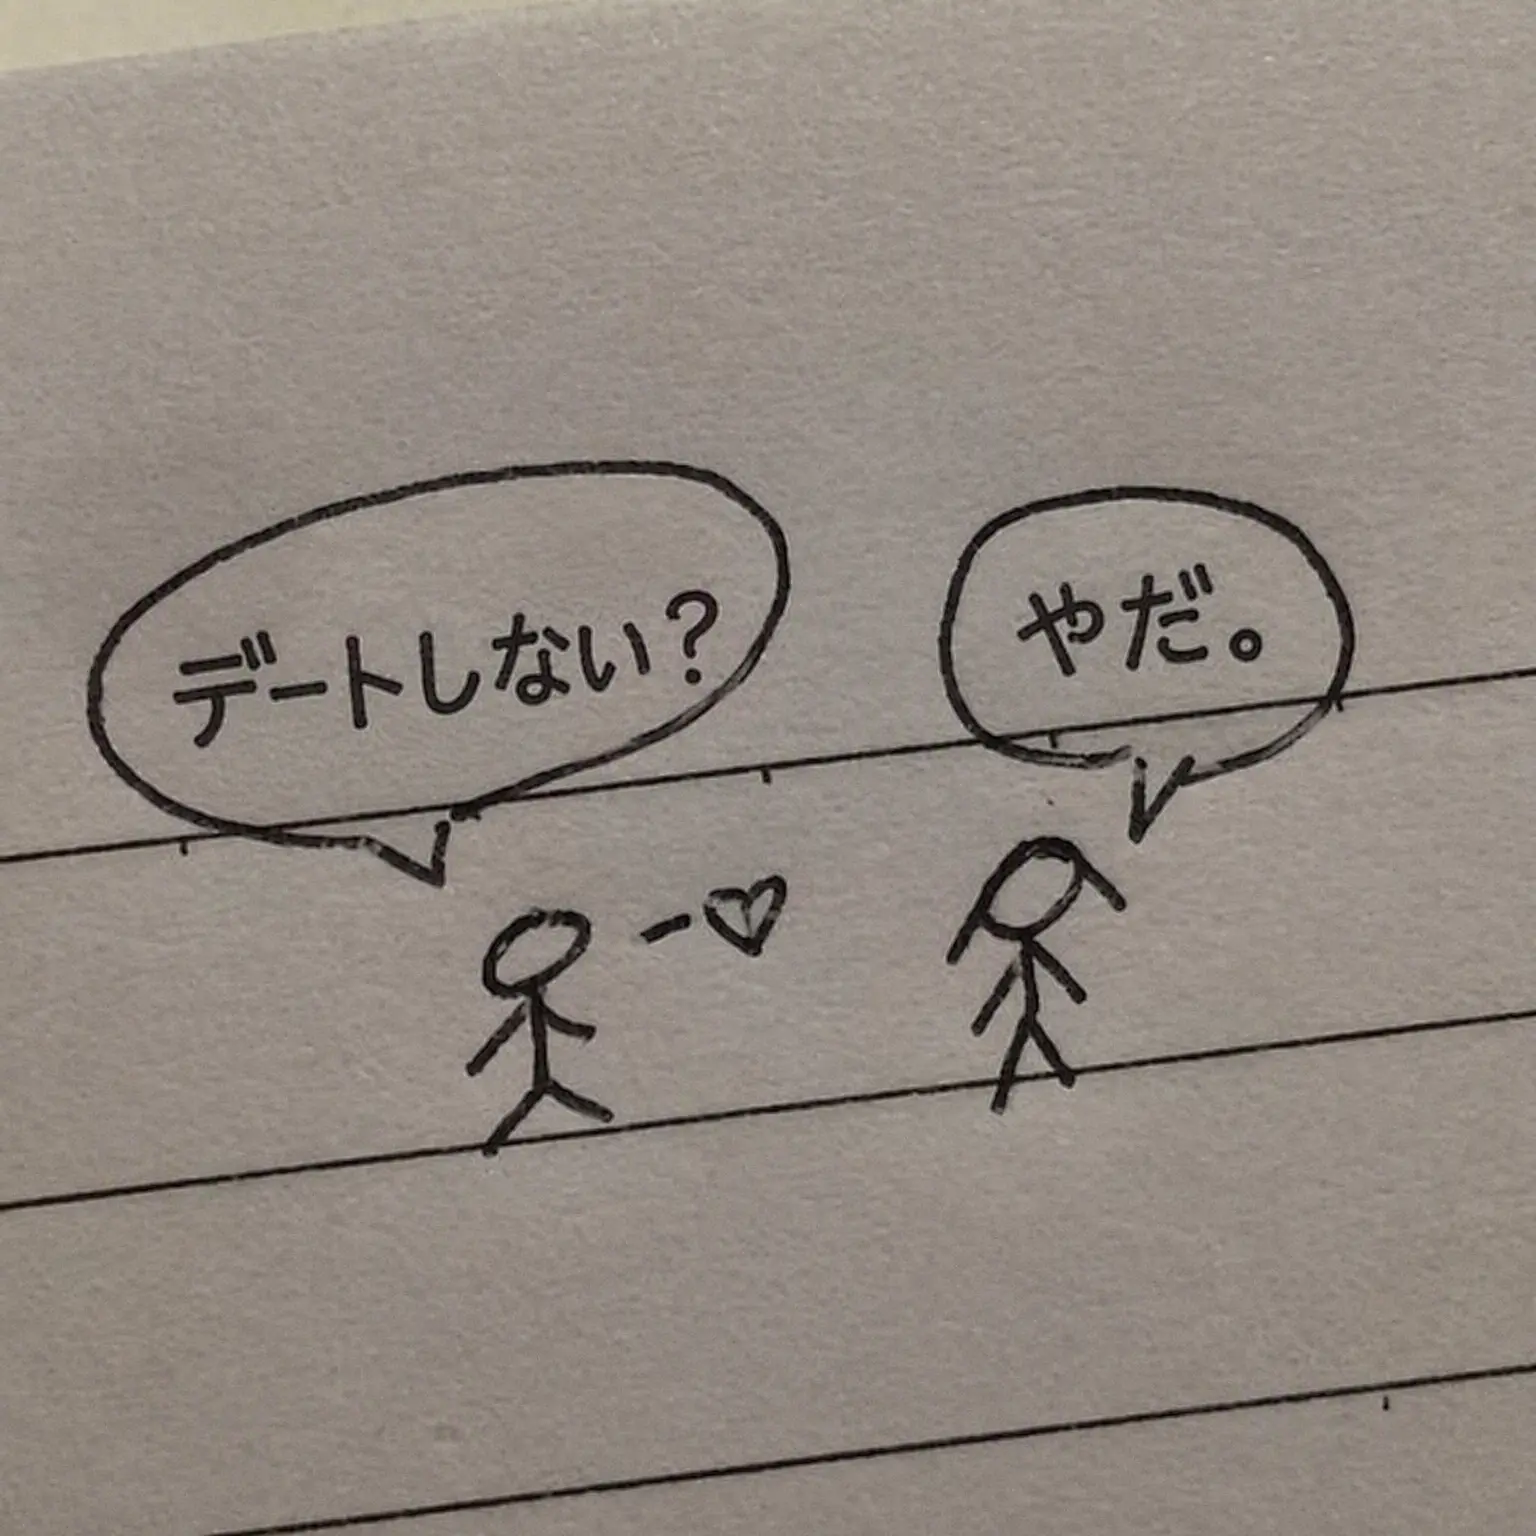 デートしない？
やだ。